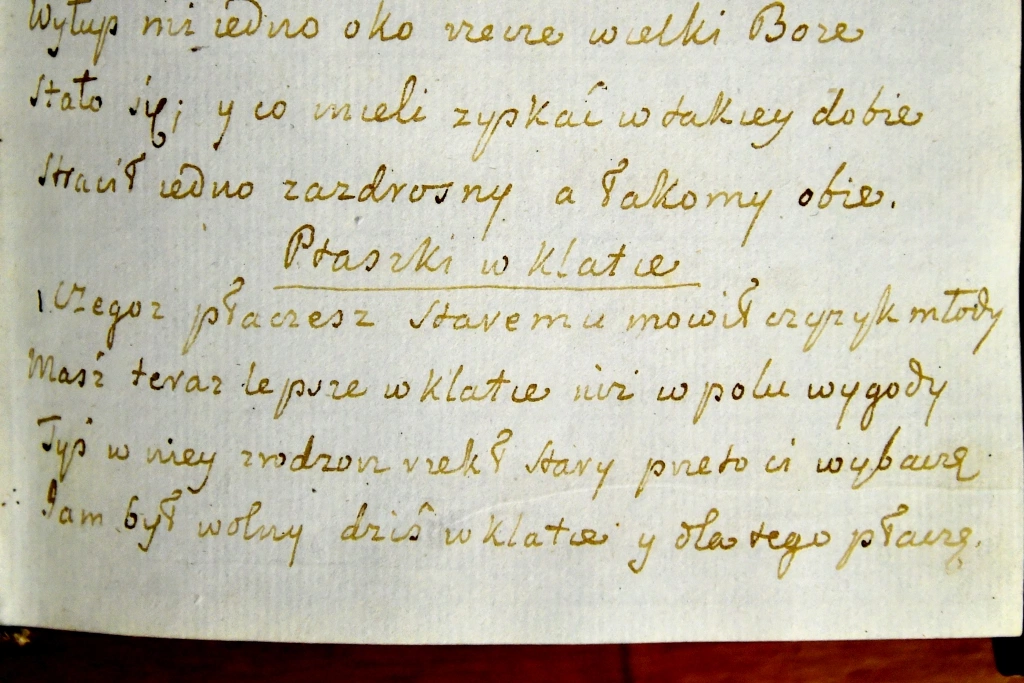 Wyłup mi iedno oko rzecze wielki Boze
stało się; y co mieli zyskać w takiey dobie
stracił iedno zazdrosny a łakomy obie.
Ptaszki w klatce
Czegoz płaczesz staremu mowił czyzyk młody
Masz teraz lepsze w klatce niz w polu wygody
Tyś w niey zrodzon rzekł stary przeto ci wybaczę
Iam był wolny dziś w klatce y dla tego płaczę.